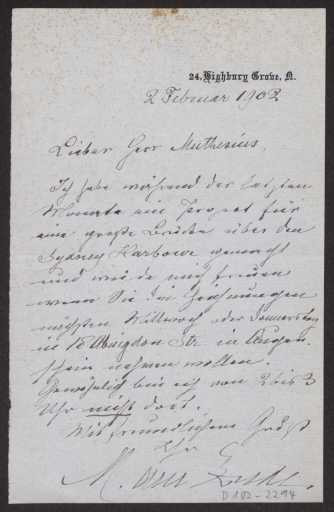 24, Highbury Grove, N.
2 Februar 1902
Lieber Herr Muthesius,
Ich habe während der letzten
Monate ein Project für
eine große Brücke über den
Sydney Harbour gemacht
und würde mich freuen
wenn Sie die Zeichnungen
nächsten Mittwoch oder Donnerstag
in 18 Abingdon Str. in Augen-
schein nehmen wollen.
Gewöhnlich bin ich von 2 bis 3
Uhr nicht dort.
Mit freundlichem Gruß
Ihr
M. am Ende.
D 102-2294